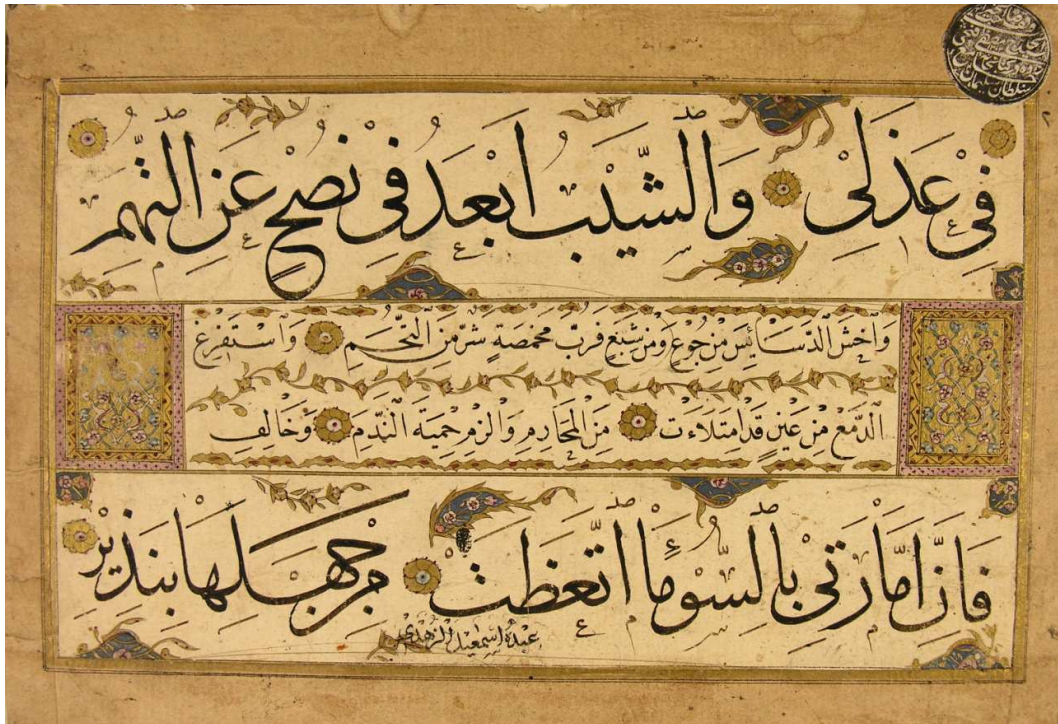 فِي عَذَلِيْ وَالشَّيْبُ اَبْعَدُ فِيْ نُصْحٍ عَنِ التُّهَمِ
وَاخْشَ الدَّسَائِسَ مِنْ جُوْعٍ وَمِنْ شِبَعٍ فَرُبَّ مَخْمَصَةٍ شَرٌّ مِنَ التُّخَمِ وَاسْتَفْرِغِ
الدَّمْعَ مِنْ عَيْنٍ قَدِ امْتَلَاَتْ مِنَ الْمَحَارِمِ وَالْزَمْ حِمْيَةَ النَّدَمِ وَخَالِفِ
فَاِنَّ اَمَّارَتِيْ بِالسُّوْءِ مَا اتَّعَظَتْ مِنْ جَهْلِهَا بِنَذِيْرِ
عبده اسمعيل الزهدي